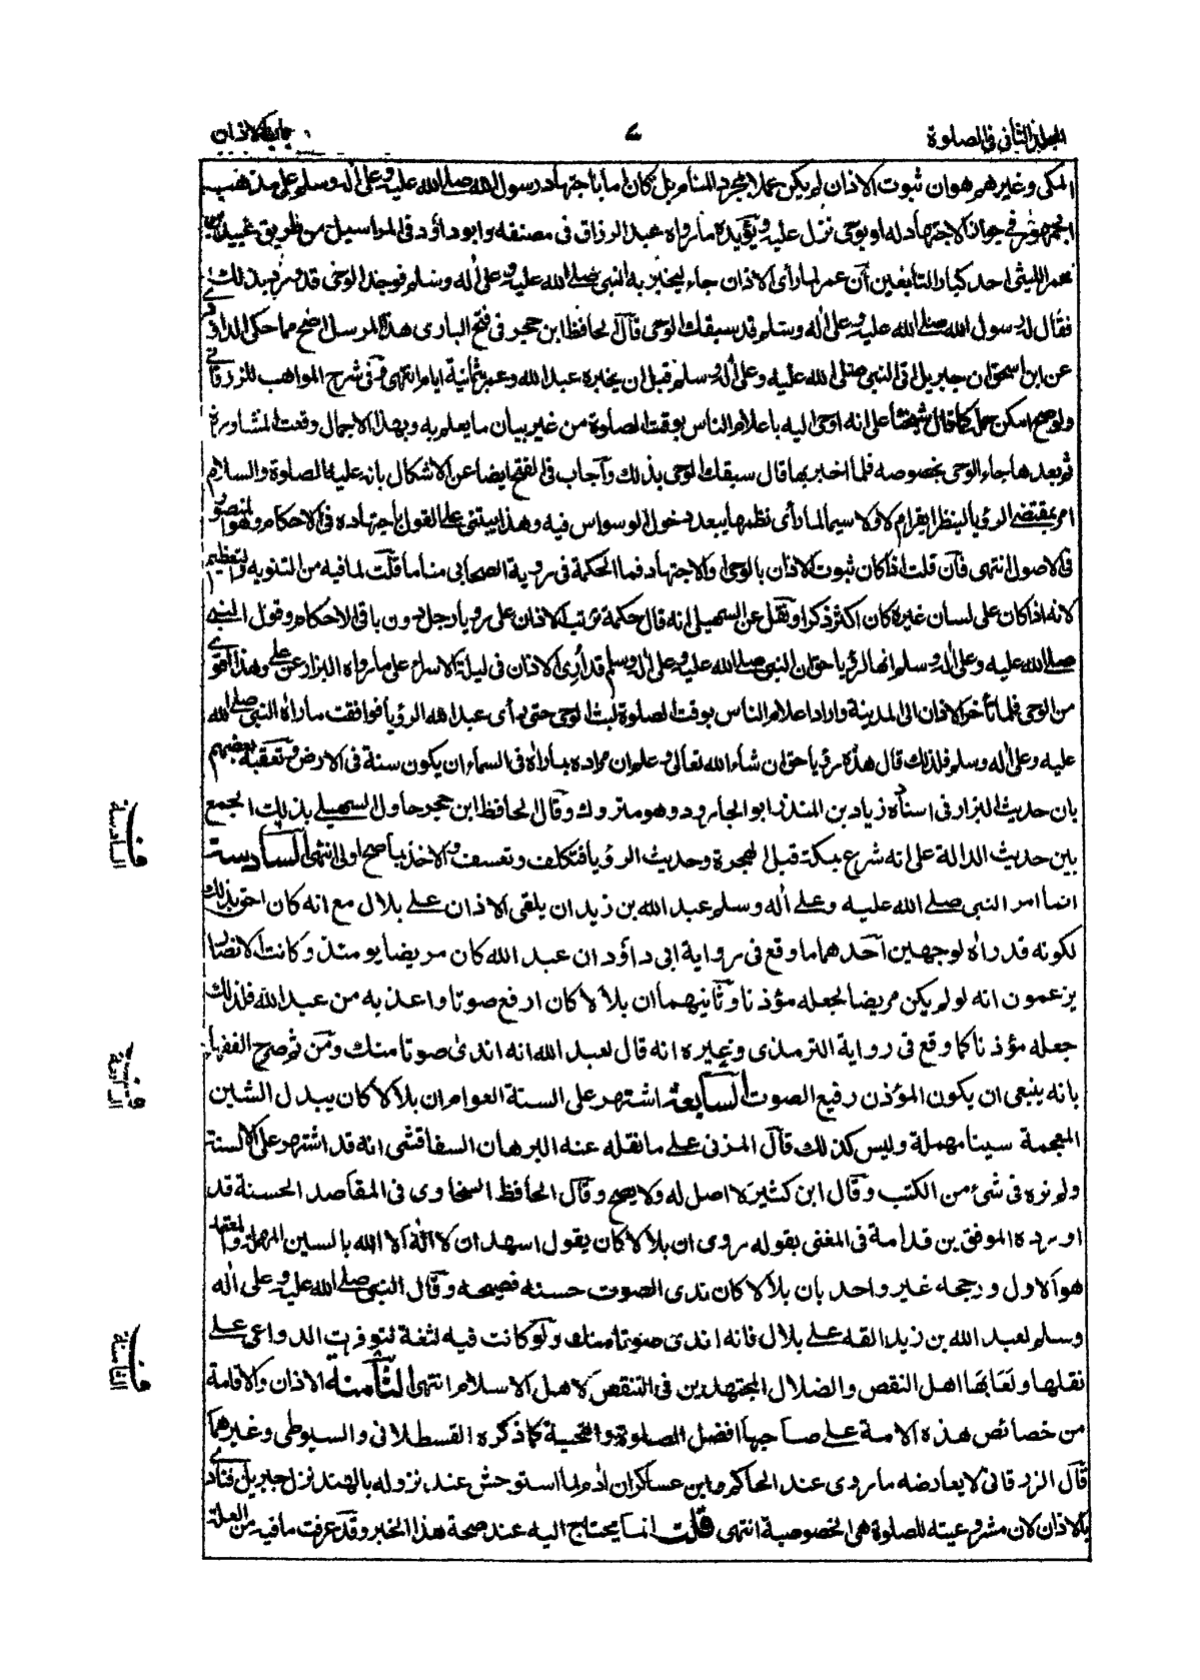 المجلد الثاني في الصلوة
٧
باب الاذان
المكى وغيرهم هو ان ثبوت الاذان لم يكن عملا بمجرد المنام بل كان اما باجتهاد رسول الله صلے الله عليه وعلى أله وسلم على مذهب
الجمهور فى جواز الاجتهاد له او بوحى نزل عليه ويؤيده ما رواه عبد الرزاق فى مصنفه وابو داؤد فى المراسيل من طريق عبيد بن
عمر الليثى احد كبار التابعين أن عمر لما رأى الاذان جاء يخبر به النبى صلے الله عليه وعلى أله وسلم فوجد الوحى قد ورد بذلك
فقال له رسول الله صلے الله عليه وعلى أله وسلم قد سبقك الوحى قال الحافظ ابن حجر فى فتح البارى هذا المرسل اصح مما حكى الداودى
عن ابن اسحق ان جبريل اتى النبى صلى الله عليه وعلى أله وسلم قبل ان يخبره عبد الله وعمر بثمانية ايام انتهى وفى شرح المواهب للزرقانے
ولو صح امكن حمله كما قال شيخنا على انه اوحى اليه باعلام الناس بوقت الصلوة من غير بيان ما يعلم به وبهذا الاجمال وقعت المشاورة
ثم بعدها جاء الوحى بخصوصه فلما اخبر بها قال سبقك الوحى بذلك وأجاب فى الفتح ايضا عن الاشكال بانه عليه الصلوة والسلام
امر بمقتضے الرؤيا لينظر ايقر ام لا ولا سيما لما رأى نظمها يبعد دخول الوسواس فيه وهذا يبتنى على القول باجتهاده فى الاحكام وهو المنصور
فى الاصول انتهى فأن قلت اذا كان ثبوت الاذان بالوحى او الاجتهاد فما الحكمة فى روية الصحابى مناما قلت لما فيه من التنويه والتعظيم
لانه اذا كان على لسان غيره كان اكثر ذكرا ونقل عن السهيلى انه قال حكمة ترتب الاذان على رويا رجل دون باقى الاحكام وقول النبى
صلے الله عليه وعلى أله وسلم انها لرؤيا حق ان النبى صلے الله عليه وعلى أله وسلم قد أرى الاذان فى ليلة الاسراء على ما رواه البزار عن علے وهذا اقوى
من الوحى فلما تأخر الاذان الى المدينة وارادا علام الناس بوقت الصلوة لبث الوحى حتى رأى عبد الله الرؤيا فوافقت ما راٰه النبى صلے الله
عليه وعلى أله وسلم فلذلك قال هذه رؤيا حق ان شاء الله تعالى وعلم ان مراده بما راٰه فى السماء ان يكون سنة فى الارض وتعقبه بعضهم
بان حديث البزار فى اسناده زياد بن المنذر ابو الجارود وهو متروك وقال الحافظ ابن حجر حاول السهيلے بذلك الجمع
بين حديث الدالة على انه شرع بمكة قبل الهجرة وحديث الرؤيا فتكلف وتعسف والاخذ بما صح اولى انتهى السادسة
انما امر النبى صلے الله عليه وعلے أله وسلم عبد الله بن زيد ان يلقى الاذان علے بلال مع انه كان احق بذلك
لكونه قد راٰه لوجهين أحدهما ما وقع فى رواية ابى داؤد ان عبد الله كان مريضا يومئذ وكانت الانصار
يزعمون انه لو لم يكن مريضا لجعله مؤذنا وثانيهما ان بلالا كان ارفع صوتا واعذب من عبد الله فلذلك
جعله مؤذنا كما وقع فى رواية الترمذى وغيره انه قال لعبد الله انه اندى صوتا منك ومن ثم صرح الفقهاء
بانه ينبغى ان يكون المؤذن رفيع الصوت السابعة اشتهر على السنة العوام ان بلالا كان يبدل الشين
المعجمة سينا مهملة وليس كذلك قال المزنى علے ما نقله عنه البرهان السفاقسى انه قد اشتهر على الالسنة
ولم نره فى شئ من الكتب وقال ابن كثير لا اصل له ولا يصح وقال الحافظ السخاوى فى المقاصد الحسنة قد
اورده الموفق بن قدامة فى المغنى بقوله روى ان بلالا كان يقول اسهد ان لا اله الا الله بالسين المهملة والمعتمد
هو الاول ورجحه غير واحد بان بلالا كان ندى الصوت حسنه فصيحه وقال النبى صلے الله عليه وعلى أله
وسلم لعبد الله بن زيد القه علے بلال فانه اندى صوتا منك ولو كانت فيه لثغة لتوفرت الدواعى علے
نقلها ولعابها اهل النقص والضلال المجتهدين فى التنقص لاهل الاسلام انتهى الثامنة الاذان والاقامة
من خصائص هذه الامة علے صاحبها افضل الصلوة والتحية كما ذكره القسطلانى والسيوطى وغيرهما
قال الزرقانى لا يعارضه ما روى عند الحاكم وابن عساكر ان أدم لما استوحش عند نزوله بالهند نزل جبريل فنادى
بالاذان لان مشروعيته للصلوة هى الخصوصية انتهى قلت انما يحتاج اليه عند صحة هذا الخبر وقد عرفت ما فيه من العلة
فـ السادسة
فـ السابعة
فـ الثامنة